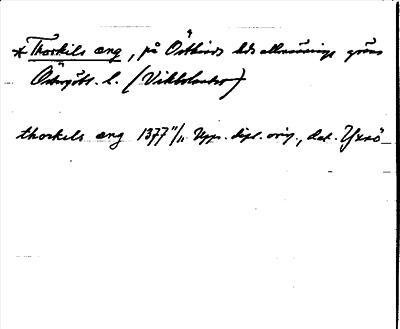 *Thorkils æng, på Östkinds hds allmännings gräns
Östergötl. l. (Vikbolandet)
thorkels æng 1377 11/11 Upps. dipl. orig., dat. Yxsö